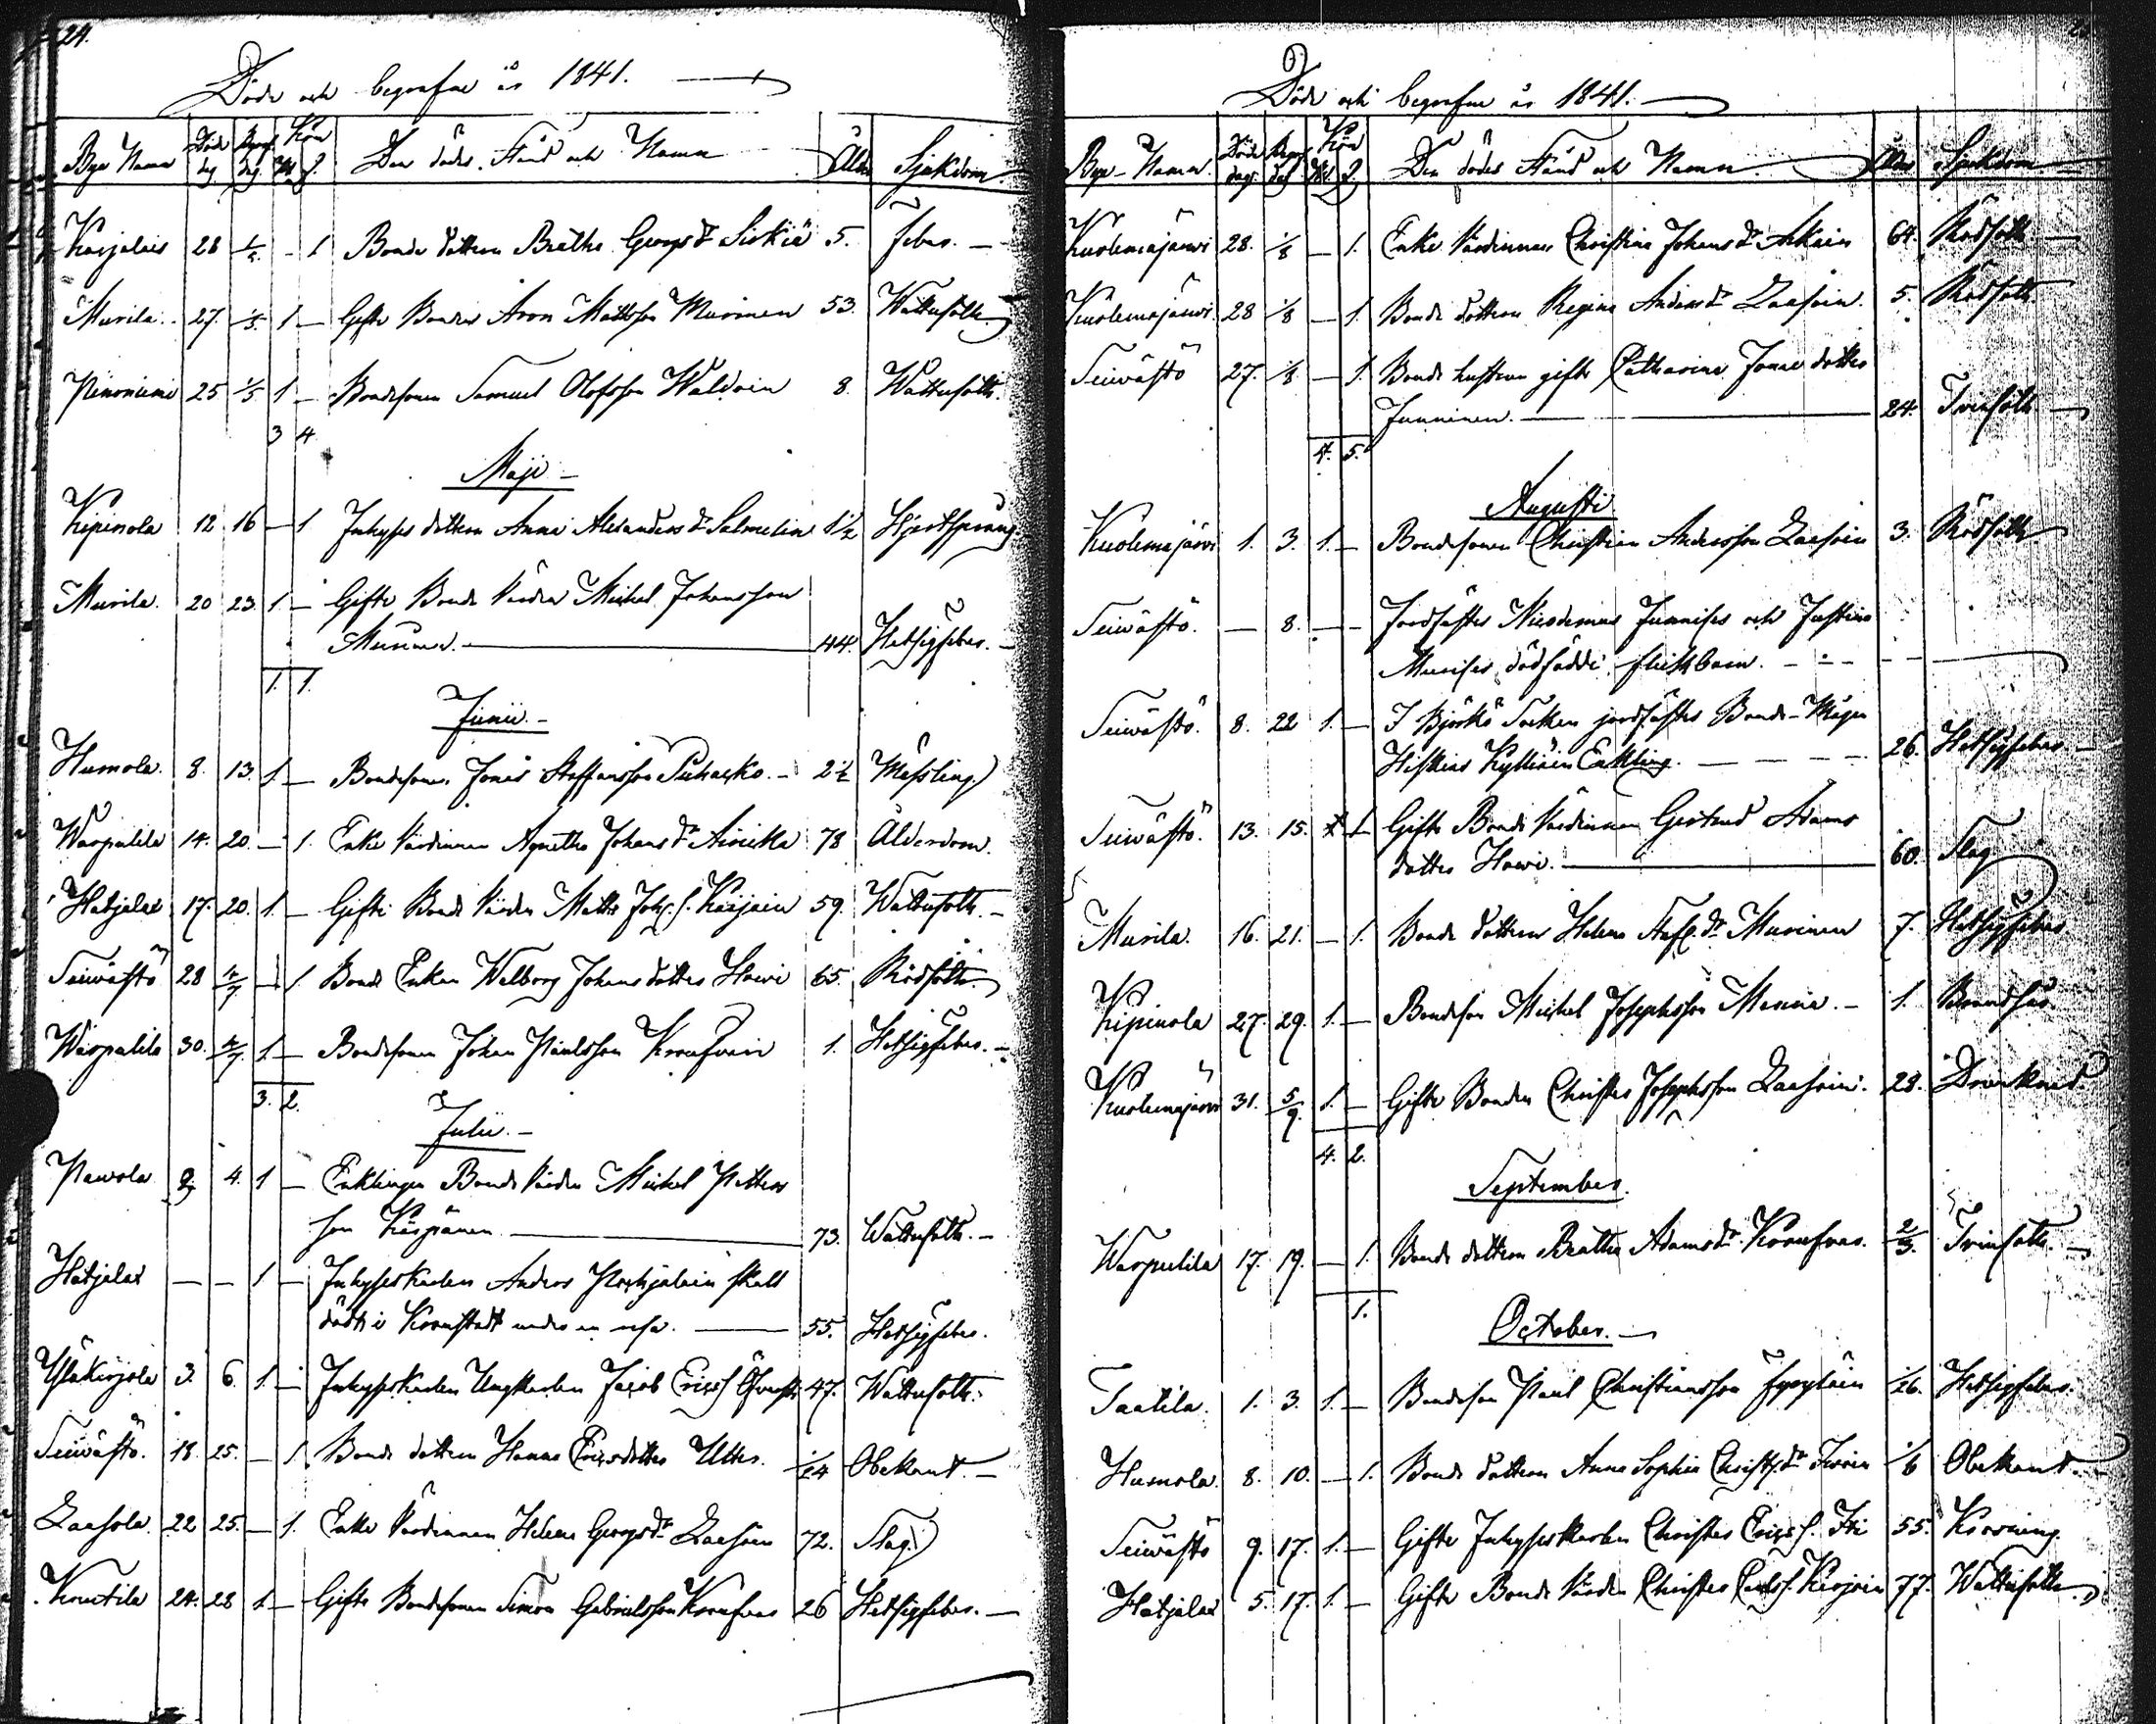 24.
Döde och begrafne år 1841.
Bya Namn Döde dag Begr. dag Kön M. Q. Den dödes Stånd och Namn Ålder Sjukdom
Karjalais 28 - 1 Bonde dottren Beatha Georgs dr Sirkiä 5. feber. -
Murila. 27. 1/5. 1 - Gifte Bonden Aron Mattsson Murinen 53. Wattusott.
25 1/5. 1 - Bondesonen Samuel Olofsson 8. Wattusott.
3 4.
Maji -
Kipinola 12 16 - 1 Inhyses dottren Anna Alexanders dr Salmelin 1½ Hjertsprång.
Murila. 20 23. 1. - Gifte Bonde Värden Michel Johansson
44. Hetsigfeber. -
1. 1.
Junii. -
Humola. 8. 13. 1 - Bondesonen Jonas Staffansson Puhakko. - 2½ Messling
Warpulila 14. 20. - 1. Enke Värdinnan Agnetha Johans dr 78 Ålderdom.
Hatjalax 17. 20. 1. - Gifte Bonde Värden Matts Joh. s. Karjain 59. Wattusott. -
Seiwästö 28 4/7 - 1 Bonde Enkan Walborg Johans dotter Howi 65. Rödsott.
Warpulila 30. 4/7. 1 - Bondesonen Johan Paulsson 1. Hetsigfeber. -
3. 2.
Julii. -
Pawola 2. 4. 1 - Enklingen Bonde Värden Michel Petters
son 73. Wattusott. -
Hatjalax - - 1 - Inhyseskarlen Anders skall
dödt i Kronstadt under en resa. 55. Hetsigfeber.
Yläkirjola 3. 6. 1. - Inhyseskarlen Ungkarlen Jacob Ericss 47. Wattusott.
Seiwästö. 18. 25. - 1 Bonde dottren Hanna Ericsdotter 1/24 Obekant. -
Laasola 22 25. - 1. Enke Värdinnan Helena Georgs dr Laasoin 72. Slag.
Krutila 24. 28 1 - Gifte Bondesonen Simon Gabrielsson 26 Hetsigfeber. -
Döde och begrafne år 1841.
Bya-Namn. Döde dag. Begr. dag Kön M. Q. Den dödes Stånd och Namn Ålder Sjukdom
Kuolemajärwi 28. 1/8 - 1. Enke Värdinnan Christina Johans dr 64. Rödsott. -
Kuolemajärwi. 28 1/8 - 1. Bonde dottren Regina Anders dr Laasoin. 5. Rödsott
Seiwästö 27. 1/8 - 1. Bonde hustrun gifte Catharina Jonae dotter
Junninen. 24. Tvinsott
4. 5.
Augusti
Kuolemajärwi 1. 3. 1. - Bondesonen Christian Andersson Laasoin 3. Rödsott
Seiwästö. - 8. - - Jordfästes Nicodemus Junnises och Justina
Murises dödfödde flickbarn. - - -
Seiwästö. 8. 22 1. - I Björkö Socken jordfästes Bonde-Mågen
Hiskias Kylliäin Enkling. 26. Hetsigfeber. -
Seiwästö. 13. 15. 1 Gifte Bonde Värdinnan Gertrud Adams
dotter Howi. 60. Slag
Murila. 16. 21. - 1. Bonde dottren Helena Staf. dr Murinen 7. Hetsigfeber
Kipinola 27. 29. 1. - Bondeson Michel Josephsson - 1.
Kuolemajärwi 31. 5/9. 1. - Gifte Bonden Christer Josephsson Laasoin. 28. Drunknad
4. 2.
September.
Warpulila 17. 19. - 1. Bonde dottren Beatha Adams dr 2/3. Tvinsott. -
1.
October. -
Taatila. 1. 3. 1. - Bondeson Paul Christiansson 1/26. Hetsigfeber.
Humola. 8. 10. - 1. Bonde dottren Anna Sophia Christ. dr 1/6 Obekant. -
Seiwästö 9. 17. 1. - Gifte Inhyseskarlen Christer Ericss. 55.
Hatjalax 5. 17. 1. - Gifte Bonde Värden Christer 77. Wattusott